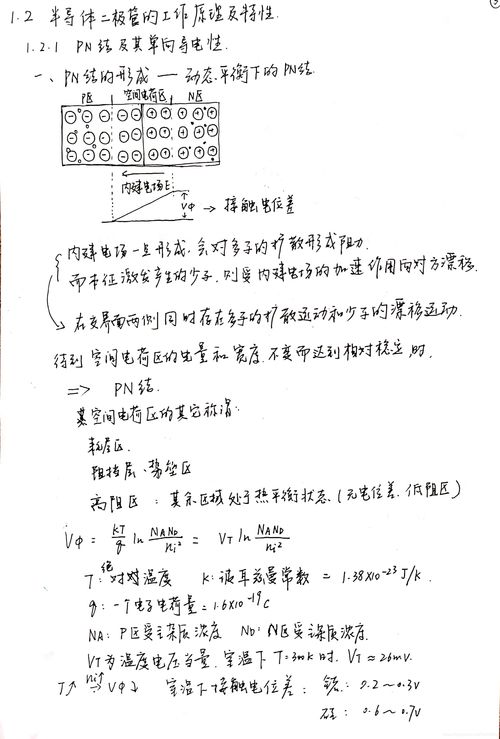 ②
1.2 半导体二极管的工作原理及特性.
1.2.1 PN结及其单向导电性.
一、PN结的形成 — 动态平衡下的PN结.
P区 空间电荷区 N区
内建电场E
Vφ → 接触电位差
内建电场一旦形成,会对多子的扩散形成阻力.
而本征激发产生的少子,则受内建电场的加速作用向对方漂移.
在交界面两侧同时存在多子的扩散运动和少子的漂移运动.
待到空间电荷区的电量和宽度不变而达到相对稳定时.
=> PN结.
空间电荷区的其它称谓:
耗尽区.
阻挡层、势垒区
高阻区:其余区域处于热平衡状态.(无电位差.低阻区)
Vφ = kT/q ln NAND/ni² = VT ln NAND/ni²
T:绝对温度 K:波耳兹曼常数 = 1.38×10⁻²³ J/K.
q:一个电子电荷量=1.6×10⁻¹⁹C
NA:P区受主杂质浓度 ND:N区受主杂质浓度.
VT为温度电压当量.室温下T=300K时.VT≈26mV.
T↑ ni↑ → Vφ↓ 室温下接触电位差:锗:0.2~0.3V
硅:0.6~0.7V